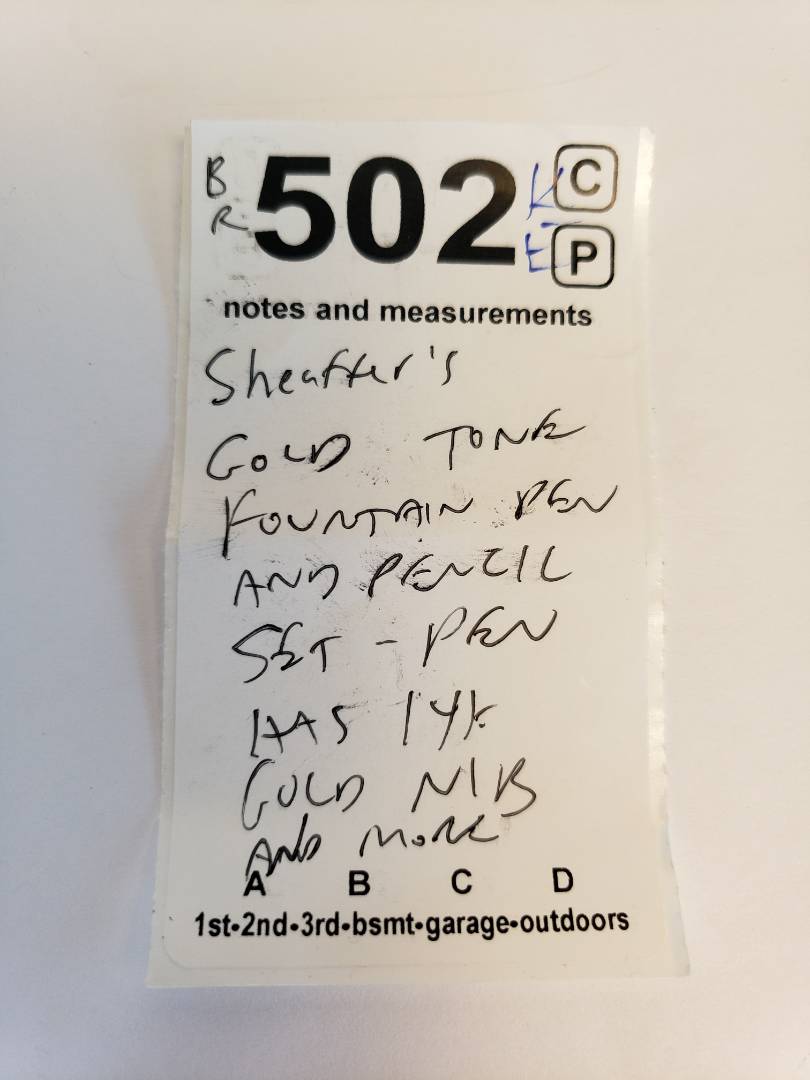 B 502 K C
R E P
notes and measurements
Sheaffer's
GOLD TONE
FOUNTAIN PEN
AND PENCIL
SET - PEN
HAS 14K
GOLD NIB
AND MORE
A B C D
1st•2nd•3rd•bsmt•garage•outdoors